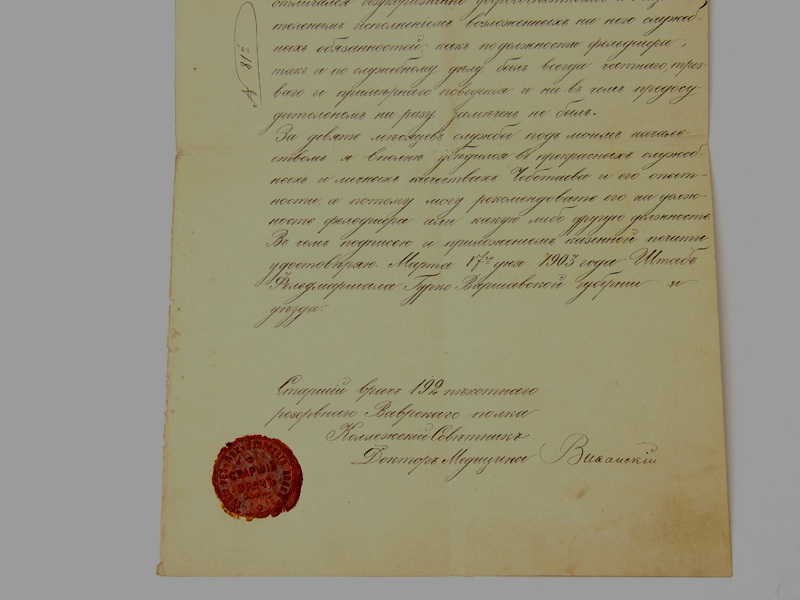 отличался безукоризненно добросовестнымъ и
тельнымъ исполненіемъ возложенныхъ на него служеб-
ныхъ обязанностей, какъ по должности фельдшера,
такъ и по служебному дѣлу былъ всегда честнаго, трез-
ваго и примѣрнаго поведенія и ни въ чемъ предосу-
дительномъ ни разу замѣченъ не былъ.
За девять мѣсяцевъ службы подъ моимъ началь-
ствомъ я вполнѣ убѣдился въ прекрасныхъ служеб-
ныхъ и личныхъ качествахъ Чеботаева и его опыт-
ности, а потому могу рекомендовать его на долж-
ность фельдшера или какую либо другую должность.
Въ чемъ подписью и приложеніемъ казенной печати
удостовѣряю. Марта 17го дня 1903 года Штабъ
Фельдмаршала Гурко Варшавской губерніи и
уѣзда.
Старшій врачъ 192 пѣхотнаго
резервнаго Ваврскаго полка
Коллежскій Совѣтникъ
Докторъ Медицины
СТАРШІЙ
ВРАЧЪ
№ 81